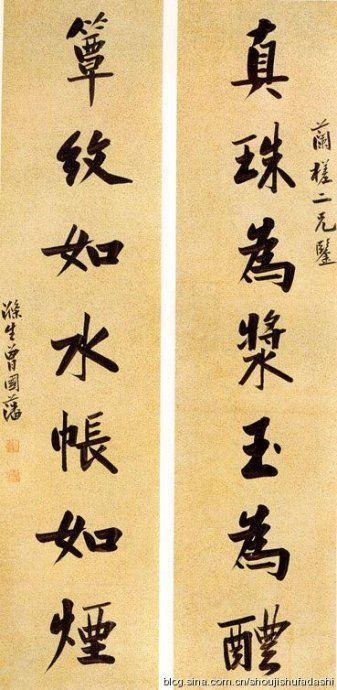 蘭槎二兄鑒
真珠為漿玉為醴
簟紋如水帳如煙
滌生曾國藩
blog.sina.com.cn/shoujishufadashi